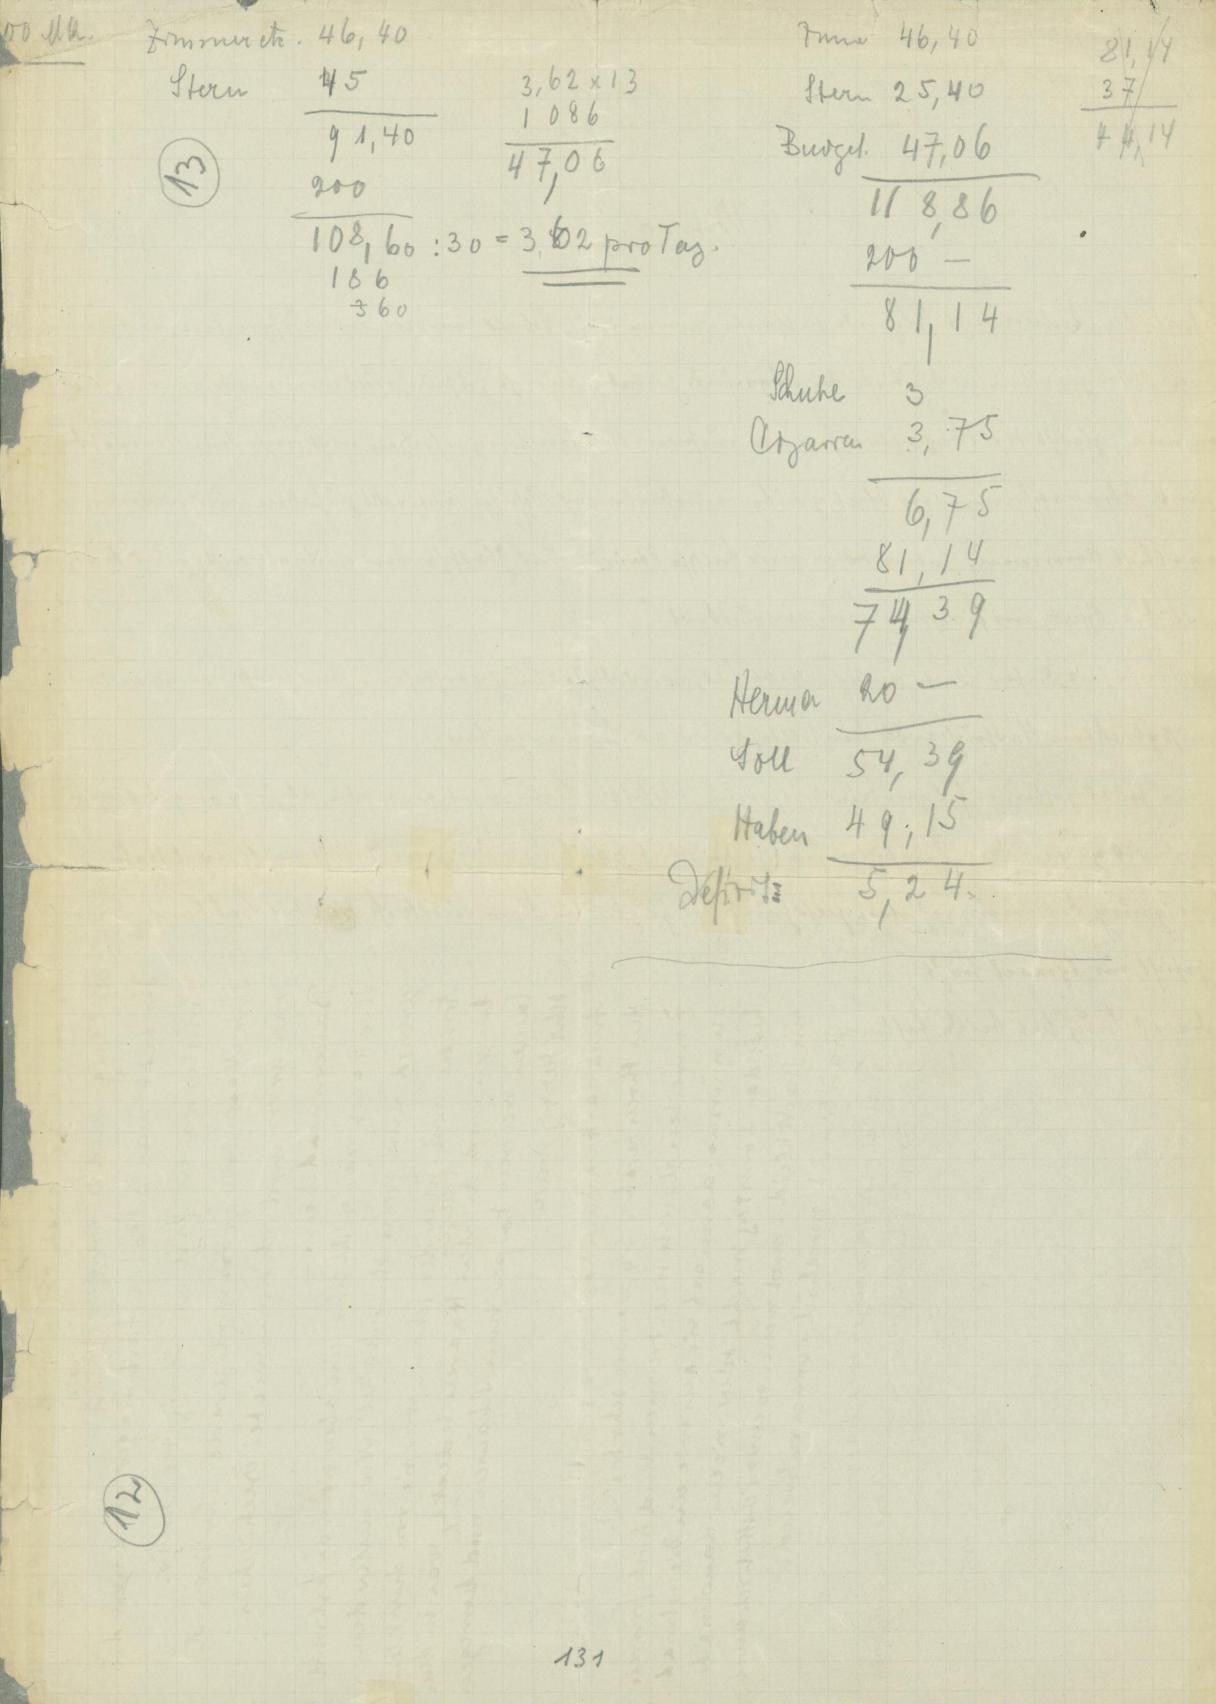 00 Mk.
Zimmer etc. 46,40
Stern 45
91,40
200
108,60 : 30 = 3,62 pro Tag.
186
360
13
3,62 x 13
1086
47,06
46,40
Stern 25,40
Budget. 47,06
118,86
200 —
81,14
81,14
37
44,14
Schuhe 3
Cigarren 3,75
6,75
81,14
74,39
Herma 20 —
Soll 54,39
Haben 49,15
Defizit 5,24.
12
131